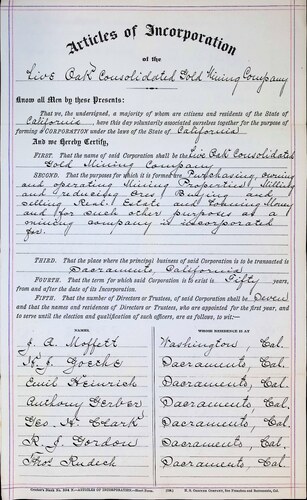 Articles of Incorporation
of the
Live Oak Consolidated Gold Mining Company
Know all Men by these Presents:
That we, the undersigned, a majority of whom are citizens and residents of the State of
California, have this day voluntarily associated ourselves together for the purpose of
forming a CORPORATION under the laws of the State of California
And we hereby Certify,
FIRST. That the name of said Corporation shall be Live Oak Consolidated
Gold Mining Company
SECOND. That the purposes for which it is formed are Purchasing, owning
and operating Mining Properties, Milling
and reducing Ores Buying and
selling Real Estate and Loaning Money
and for such other purposes as a
mining company is incorporated
for.
THIRD. That the place where the principal business of said Corporation is to be transacted is
Sacramento, California
FOURTH. That the term for which said Corporation is to exist is Fifty years,
from and after the date of its Incorporation.
FIFTH. That the number of Directors or Trustees, of said Corporation, shall be Seven
and that the names and residences of Directors or Trustees, who are appointed for the first year, and
to serve until the election and qualification of such officers, are as follows, to wit:
NAMES. WHOSE RESIDENCE IS AT
J. A. Moffett Washington, Cal.
H. J. Goethe Sacramento, Cal.
Emil Heinrich Sacramento, Cal.
Anthony Gerber Sacramento, Cal.
Geo. H. Clark Sacramento, Cal.
R. J. Gordon Sacramento, Cal.
Thos. Rudich Sacramento, Cal.
ARTICLES OF INCORPORATION